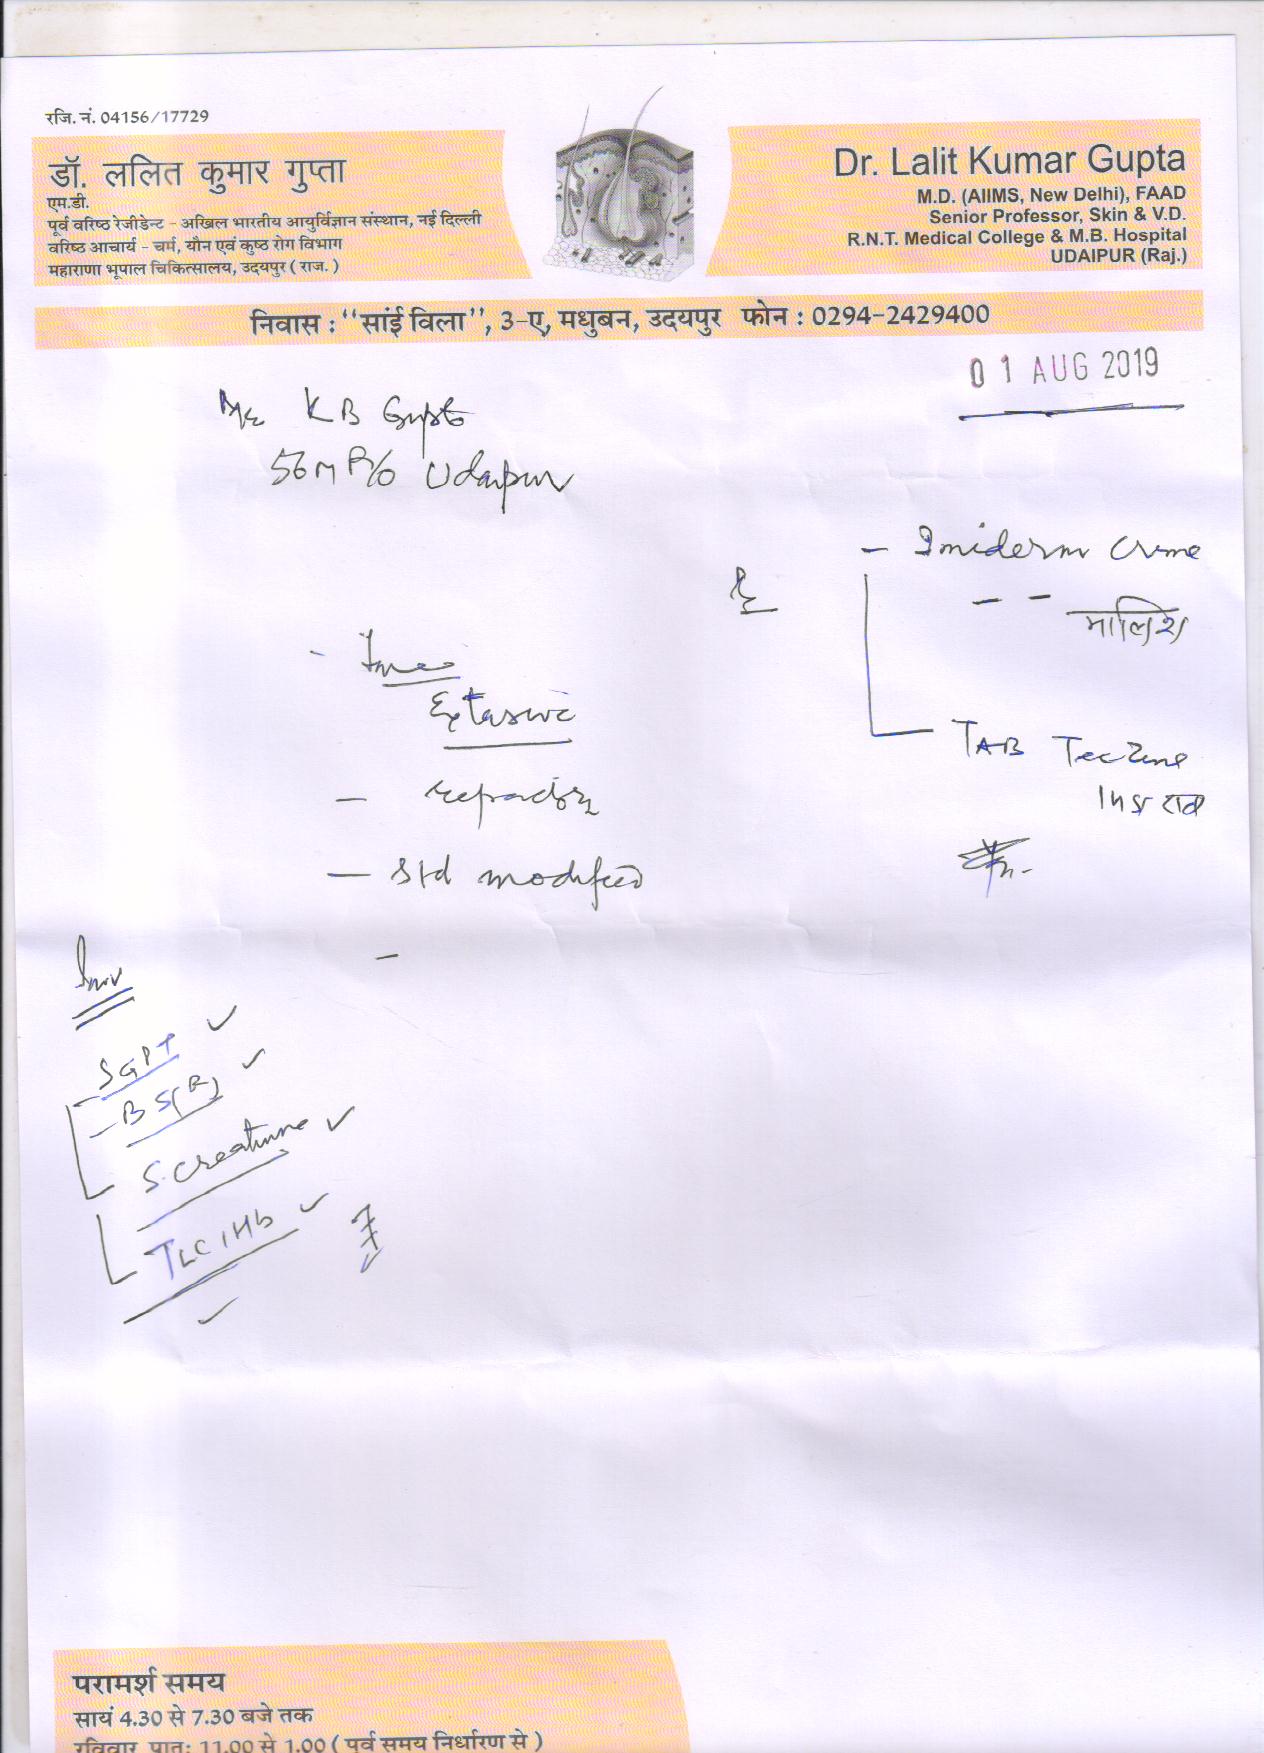 रजि. नं. 04156/17729
डॉ. ललित कुमार गुप्ता
एम.डी.
पूर्व वरिष्ठ रेजीडेन्ट - अखिल भारतीय आयुर्विज्ञान संस्थान, नई दिल्ली
वरिष्ठ आचार्य - चर्म, यौन एवं कुष्ठ रोग विभाग
महाराणा भूपाल चिकित्सालय, उदयपुर ( राज. )
Dr. Lalit Kumar Gupta
M.D. (AIIMS, New Delhi), FAAD
Senior Professor, Skin & V.D.
R.N.T. Medical College & M.B. Hospital
UDAIPUR (Raj.)
निवास : "सांई विला", 3-ए, मधुबन, उदयपुर फोन : 0294-2429400
01 AUG 2019
KB Gupta
56 M R/o Udaipur
- Imiderm creme
मालिश
TAB Teczine
- Std modified
Inv
- SGPT
- BS(R)
S. Creatinine
TLC, Hb
परामर्श समय
सायं 4.30 से 7.30 बजे तक
रविवार प्रातः 11.00 से 1.00 ( पूर्व समय निर्धारण से )